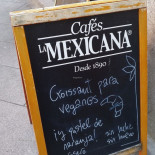 Cafés
LA MEXICANA
Desde 1890
Croissant para
veganos
¡y pastel de
naranja! sin leche
sin huevo